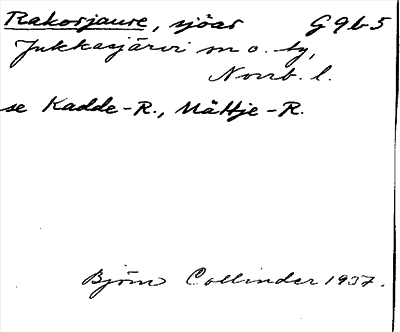 Rakorjaure, sjöar G 9 b-5
Jukkasjärvi sn o. by,
Norrb. l.
se Kadde-R., Måttje-R.
Björn Collinder 1937.